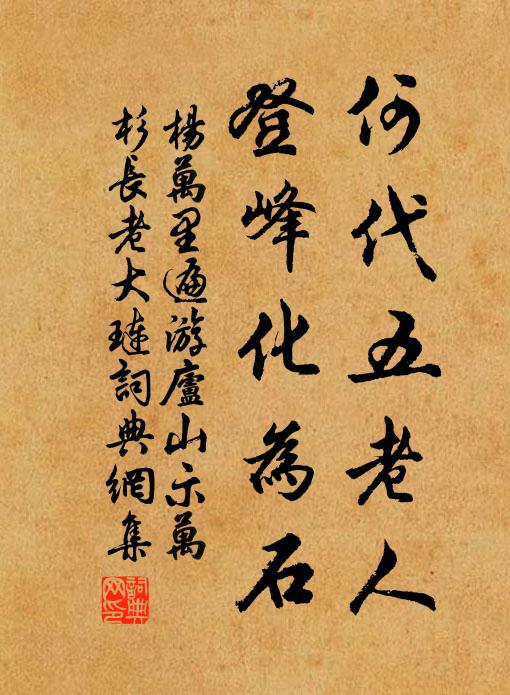 何代五老人
登峰化為石
楊萬里遍游廬山示萬
杉長老大璉詞典網集
詞典網印